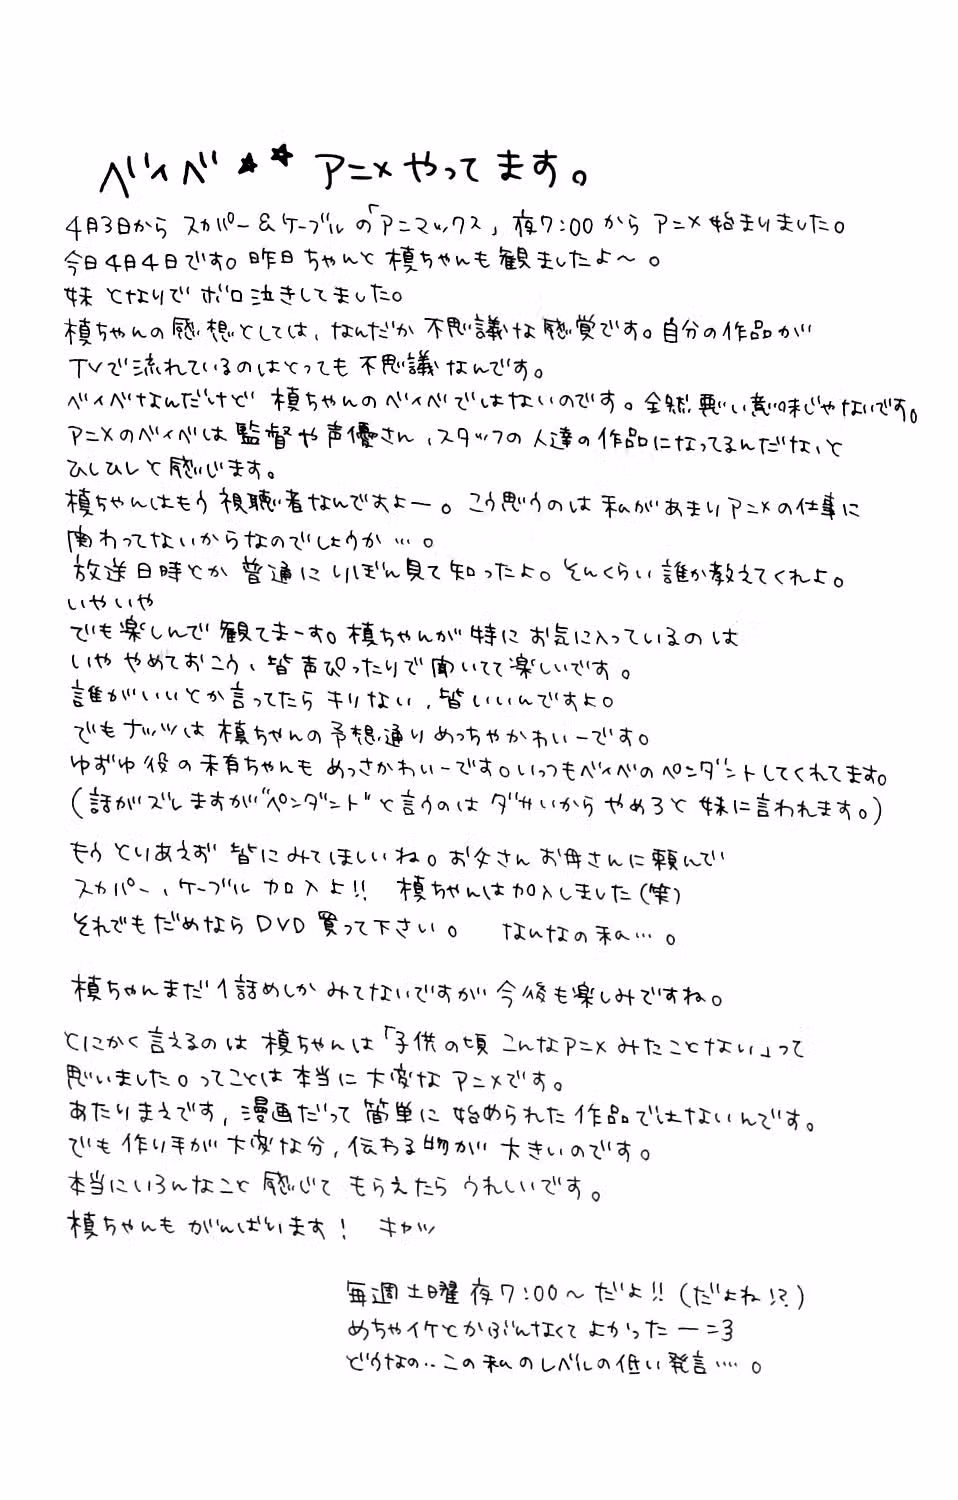 ベイベ★★ アニメやってます。
4月3日から スカパー&ケーブルの「アニマックス」夜7:00から アニメ始まりました。
今日4月4日です。昨日ちゃんと槙ちゃんも観ましたよ〜。
妹となりでボロ泣きしてました。
槙ちゃんの感想としては、なんだか不思議な感覚です。自分の作品が
TVで流れているのはとっても不思議なんです。
ベイベなんだけど 槙ちゃんのベイベではないのです。全然悪い意味じゃないです。
アニメのベイベは監督や声優さん、スタッフの人達の作品になってるんだな、と
ひしひしと感じます。
槙ちゃんはもう視聴者なんですよー。こう思うのは私があまりアニメの仕事に
関わってないからなのでしょうか…。
放送日時とか普通にりぼん見て知ったよ。そんくらい誰か教えてくれよ。
いやいや
でも楽しんで観てまーす。槙ちゃんが特にお気に入っているのは
いややめておこう、皆声ぴったりで聞いてて楽しいです。
誰がいいとか言ってたらキリない、皆いいんですよ。
でもナッツは槙ちゃんの予想通りめっちゃかわいーです。
ゆずゆ役の未有ちゃんもめっさかわいーです。いっつもベイベのペンダントしてくれてます。
(話がズレますが"ペンダント"と言うのはダサいからやめろと妹に言われます。)
もうとりあえず皆にみてほしいね。お父さんお母さんに頼んで
スカパー、ケーブル加入よ!! 槙ちゃんは加入しました(笑)
それでもだめならDVD買って下さい。 なんなの私…。
槙ちゃんまだ1話めしかみてないですが今後も楽しみですね。
とにかく言えるのは槙ちゃんは「子供の頃こんなアニメみたことない」って
思いました。ってことは本当に大変なアニメです。
あたりまえです、漫画だって簡単に始められた作品ではないんです。
でも作り手が大変な分、伝わる物が大きいのです。
本当にいろんなこと感じてもらえたらうれしいです。
槙ちゃんもがんばります! キャッ
毎週土曜夜7:00〜だよ!!(だよね!?)
めちゃイケとかぶんなくてよかったー=3
どうなの‥この私のレベルの低い発言‥‥。